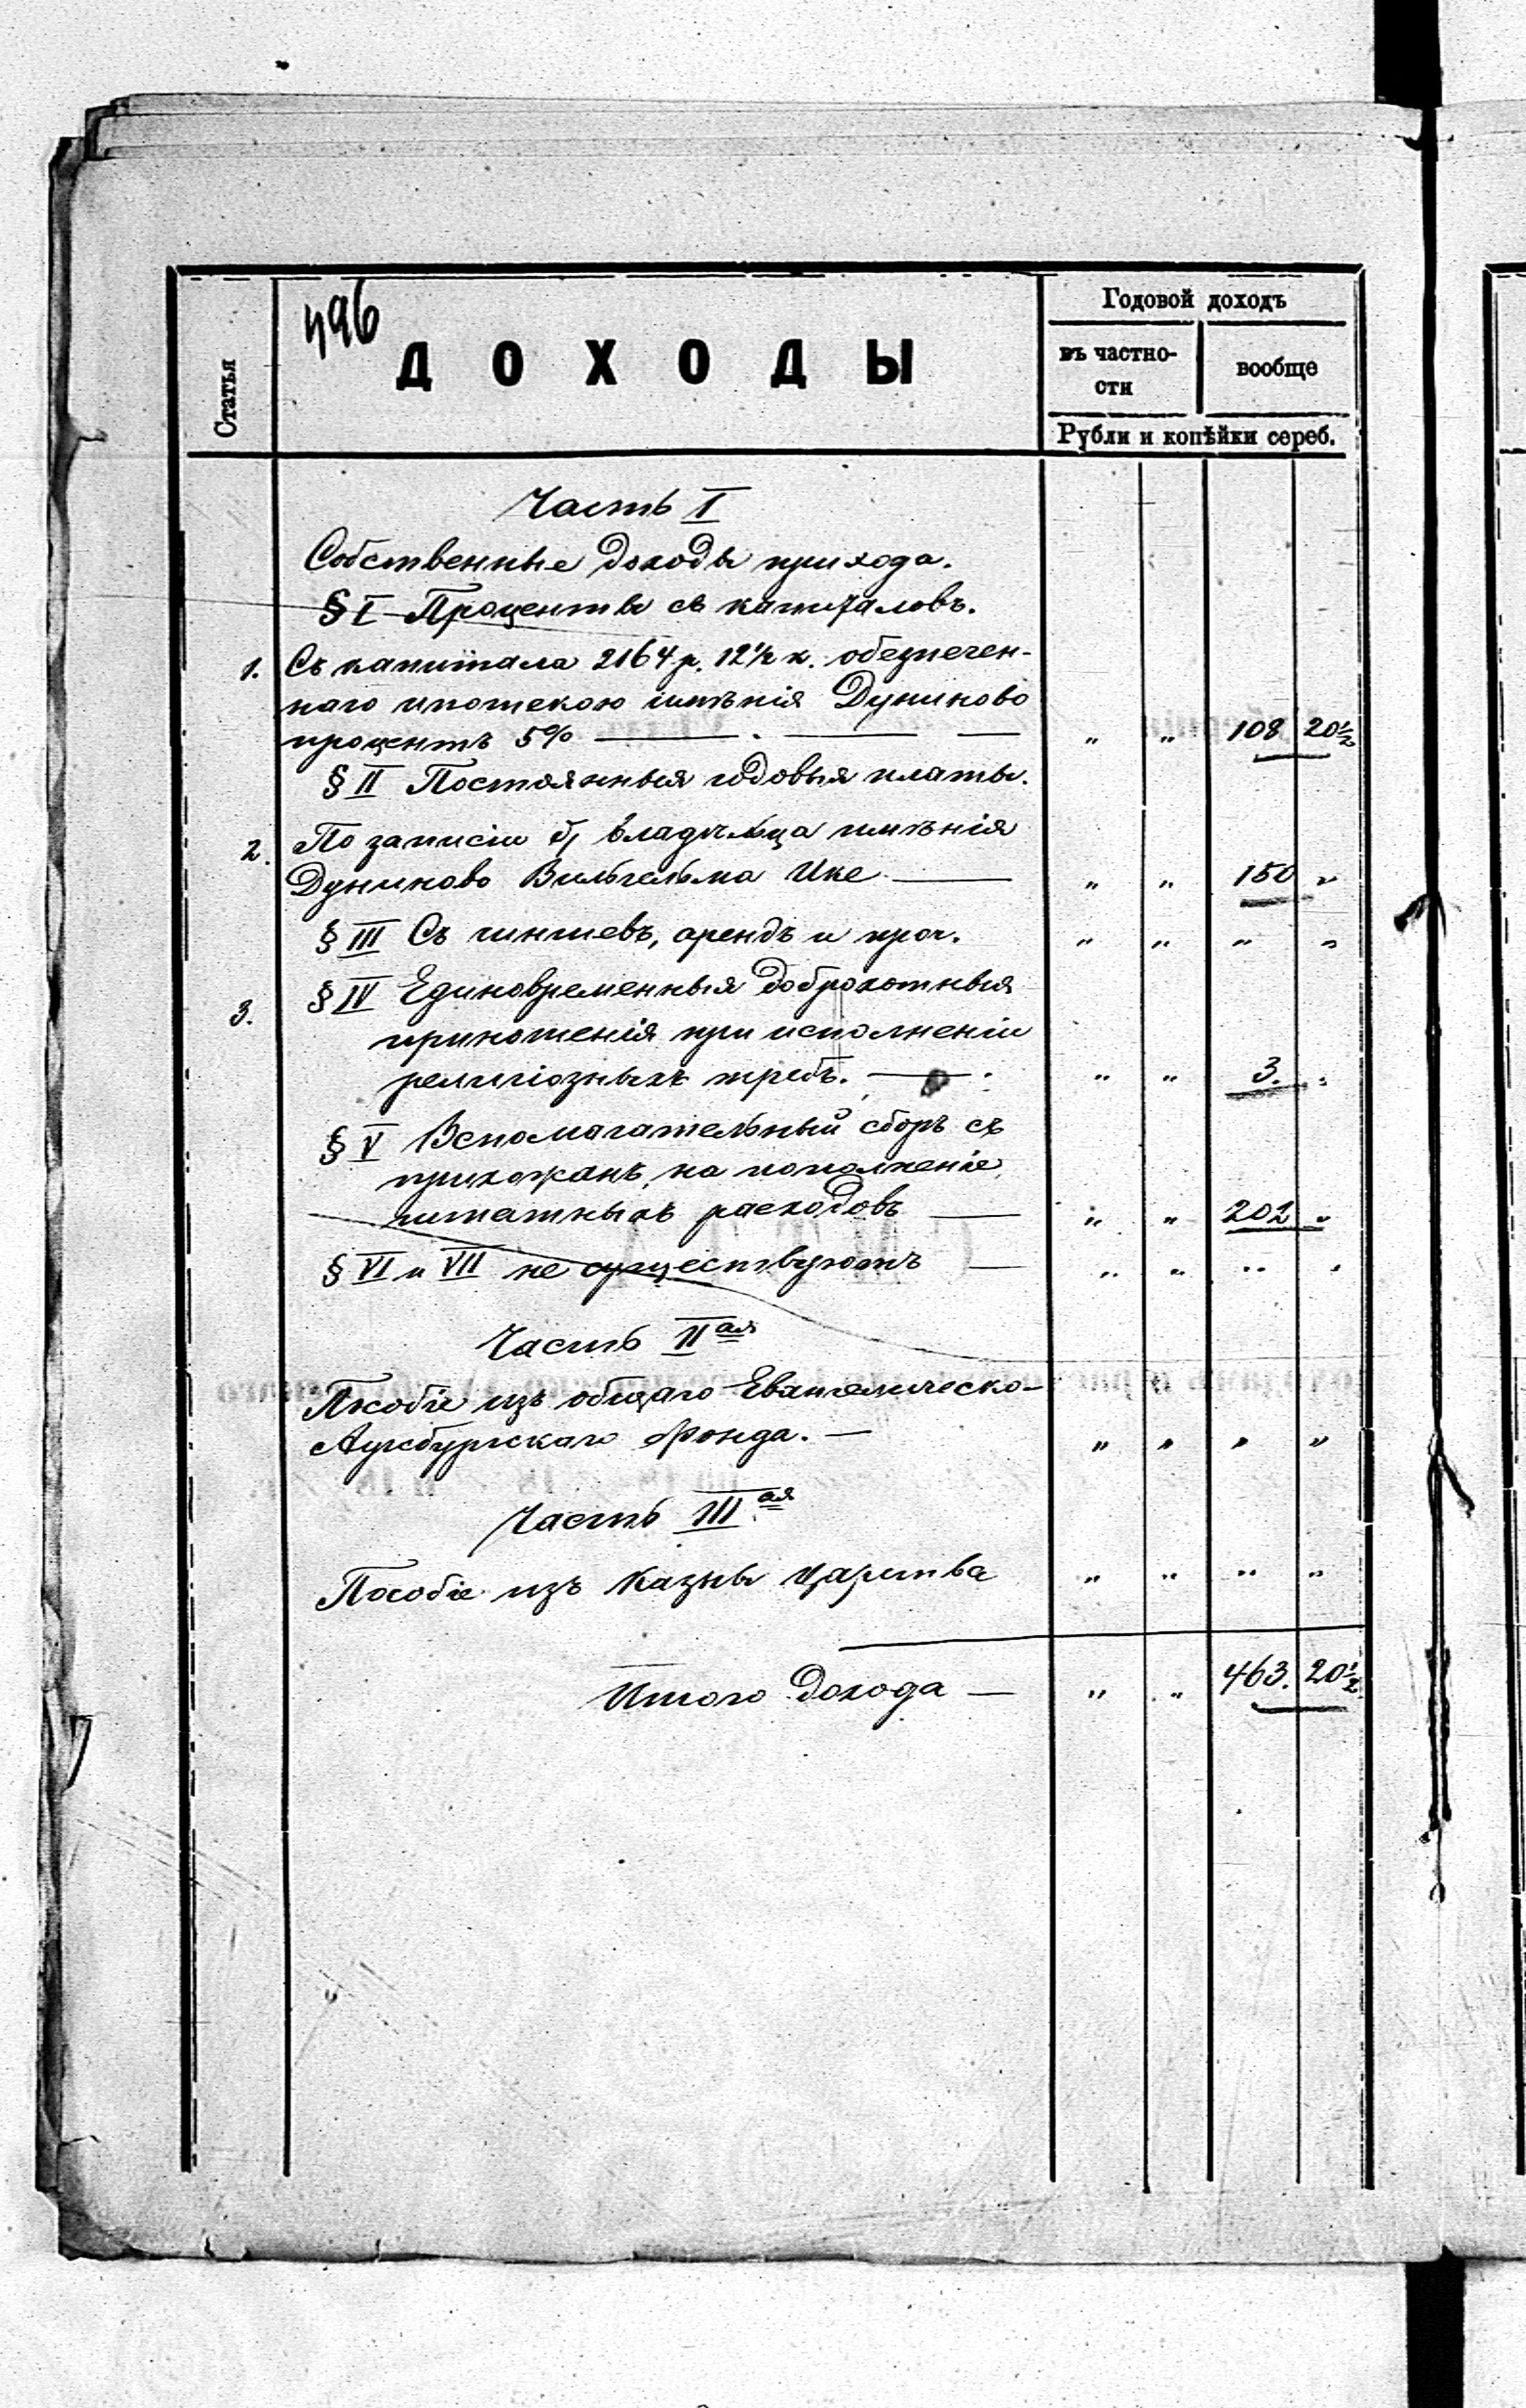 496
ДОХОДЫ
Статья
Годовой доходъ
въ частно-
сти
вообще
Рубли и копѣйки сереб.
Часть I
Собственные доходы прихода.
§ I Проценты съ капиталовъ.
1. Съ капитала 2164 р. 12 1/2 к. обезпечен-
наго ипотекою имѣнія Дуниково
процентъ 5% — „ „ 108 20 1/2
§ II Постоянныя годовыя платы.
2. По записи б, владѣльца имѣнія
Дуниково Вильгельма Ике — „ „ 150 „
§ III Съ чиншевъ, арендъ и проч. „ „ „ „
3. § IV Единовременныя доброхотныя
приношенія при исполненіи
религіозныхъ требъ. — „ „ 3. „
§ V Вспомагательный сборъ съ
прихожанъ, на пополненіе
штатныхъ расходовъ — „ „ 202 „
§ VI и VII не существуютъ — „ „ „ „
Часть II ая
Пособіе изъ общаго Евангелическо-
Аугсбургскаго Фонда. — „ „ „ „
Часть III ая
Пособіе изъ Казны Царства „ „ „ „
Итого дохода — „ „ 463. 20 1/2